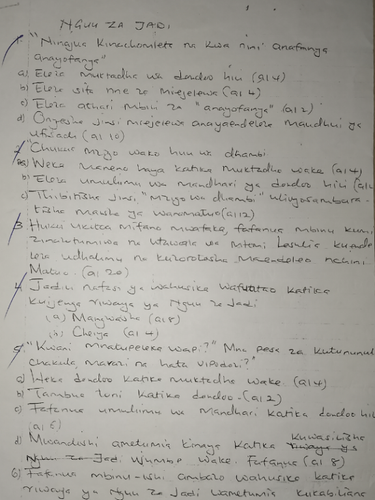 NGUU ZA JADI
1. "Ningua kinachomlete na kwa nini anafanya
anayofanya"
a) Eleza muktadha wa dondoo hili (al 4)
b) Eleza sifa nne za mrejelewa (al 4)
c) Eleza athari mbili za "anayofanya" (al 2)
d) Onyesha jinsi mrejelewa anayaendeleza maudhui ya
(al 10)
2. "Chukua mzigo wako huu wa dhambi.
a) Weka maneno haya katika muktadha wake (al 4)
b) Eleza umuhimu wa mandhari ya dondoo hili (al
c) Thibitisha jinsi "mzigo wa dhambi" ulivyosambara-
tisha maisha ya wanomatuo (al 12)
3. Huku ukitoa mifano mwafaka, fafanua mbinu kumi
zinazotumiwa na utawala wa Mtemi Lesulia kuende
leza udhalimu na kuzorotesha maendeleo nchini
Matuo. (al 20)
4. Jadili nafasi ya wahusika wafuatao katika
kuijenga riwaya ya Nguu za Jadi
(a) Mangwasha (al 8)
(b) Cheiya (al 4)
5. "Kwani mnatupeleka wapi?" Mna pesa za kutununulia
chakula, mavazi na hata vipodozi?"
a) Weka dondoo katika muktadha wake. (al 4)
b) Tambua toni katika dondoo. (al 2)
c) Fafanua umuhimu wa mandhari katika dondoo hili
(al 6)
d) Mwandishi ametumia kinaya katika kuwasilisha
ujumbe wake. Fafanua (al 8)
6) Fafanua mbinu ambazo wahusika katika
riwaya ya Nguu za Jadi wametumia kukabiliana